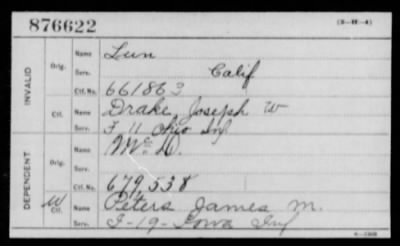 876622 (3-H-4)
INVALID
Orig. Name Lun
Serv. Calif
Ctf. No. 661863
Ctf. Name Drake, Joseph W
Serv. F 11 Ohio Inf
DEPENDENT
Orig. Name McD.
Serv.
Ctf. No. 679,538
W Ctf. Name Peters, James M.
Serv. F-19-Iowa Inf